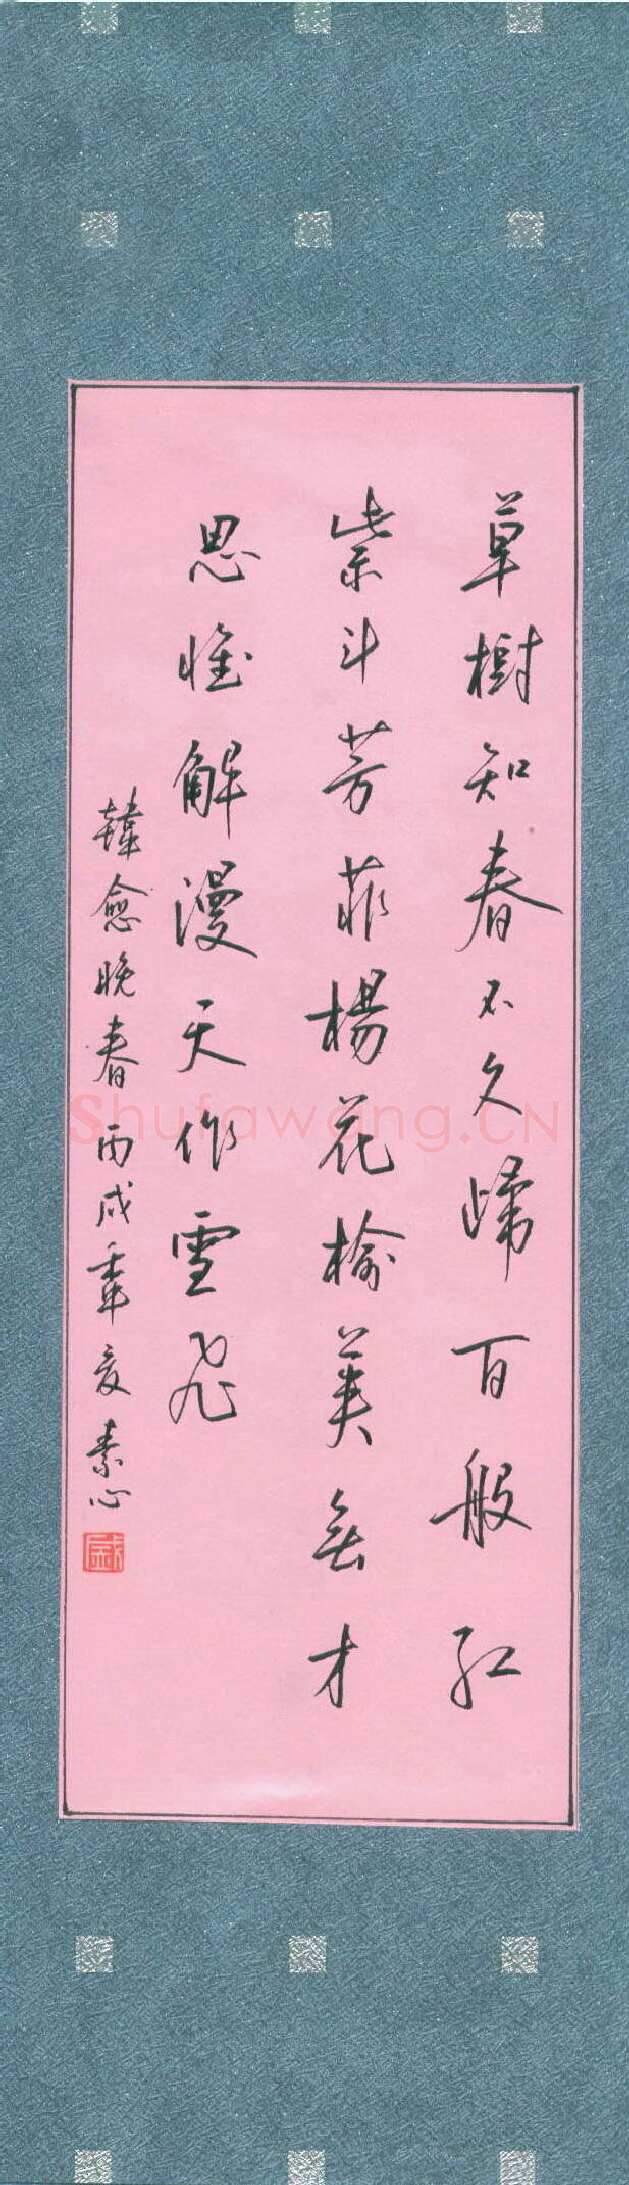 草樹知春不久歸百般紅
紫斗芳菲楊花榆荚無才
思惟解漫天作雪飛
韓愈晚春丙戌年夏素心
Shufawang.CN